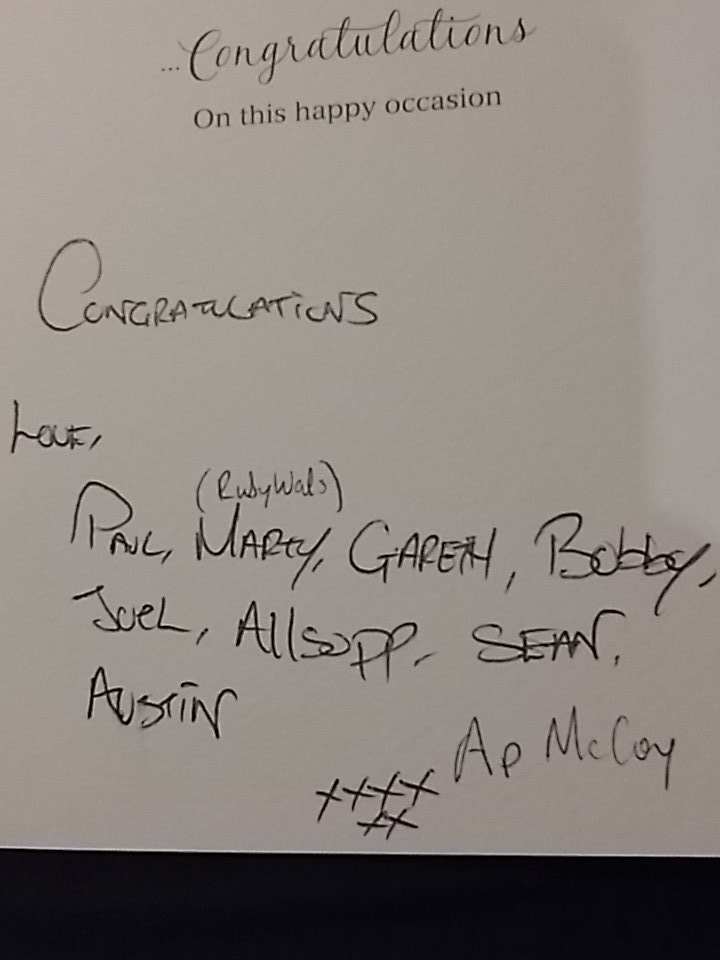 ...Congratulations
On this happy occasion
CONGRATULATIONS
LOVE,
(Ruby Wals)
PAUL, MARTY, GARETH, Bobby,
JOEL, Allsopp, SEAN,
AUSTIN
Ap McCoy
xxxx
xx